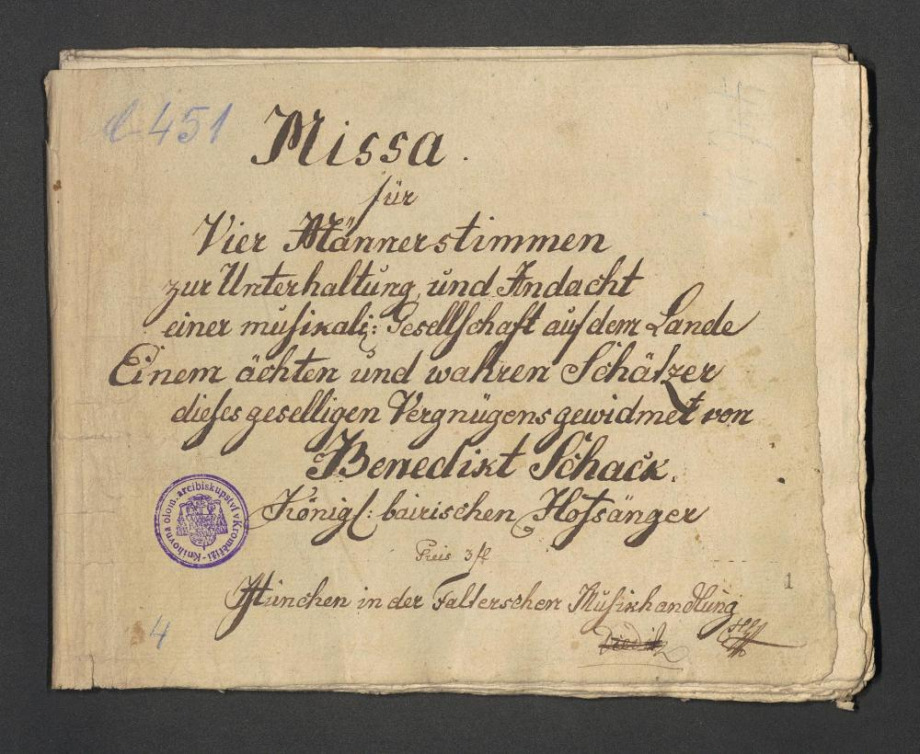 C 451
Missa.
für
Vier Männerstimmen
zur Unterhaltung, und Andacht
einer musikali: Gesellschaft auf dem Lande
Einem ächten und wahren Schätzer
dieses geselligen Vergnügens gewidmet von
Benedikt Schack.
Königl: bairischen Hofsänger
Preis 3 fl
München in der Falterschen Musikhandlung
Knihovna olom. arcibiskupství v Kroměříži
1
4